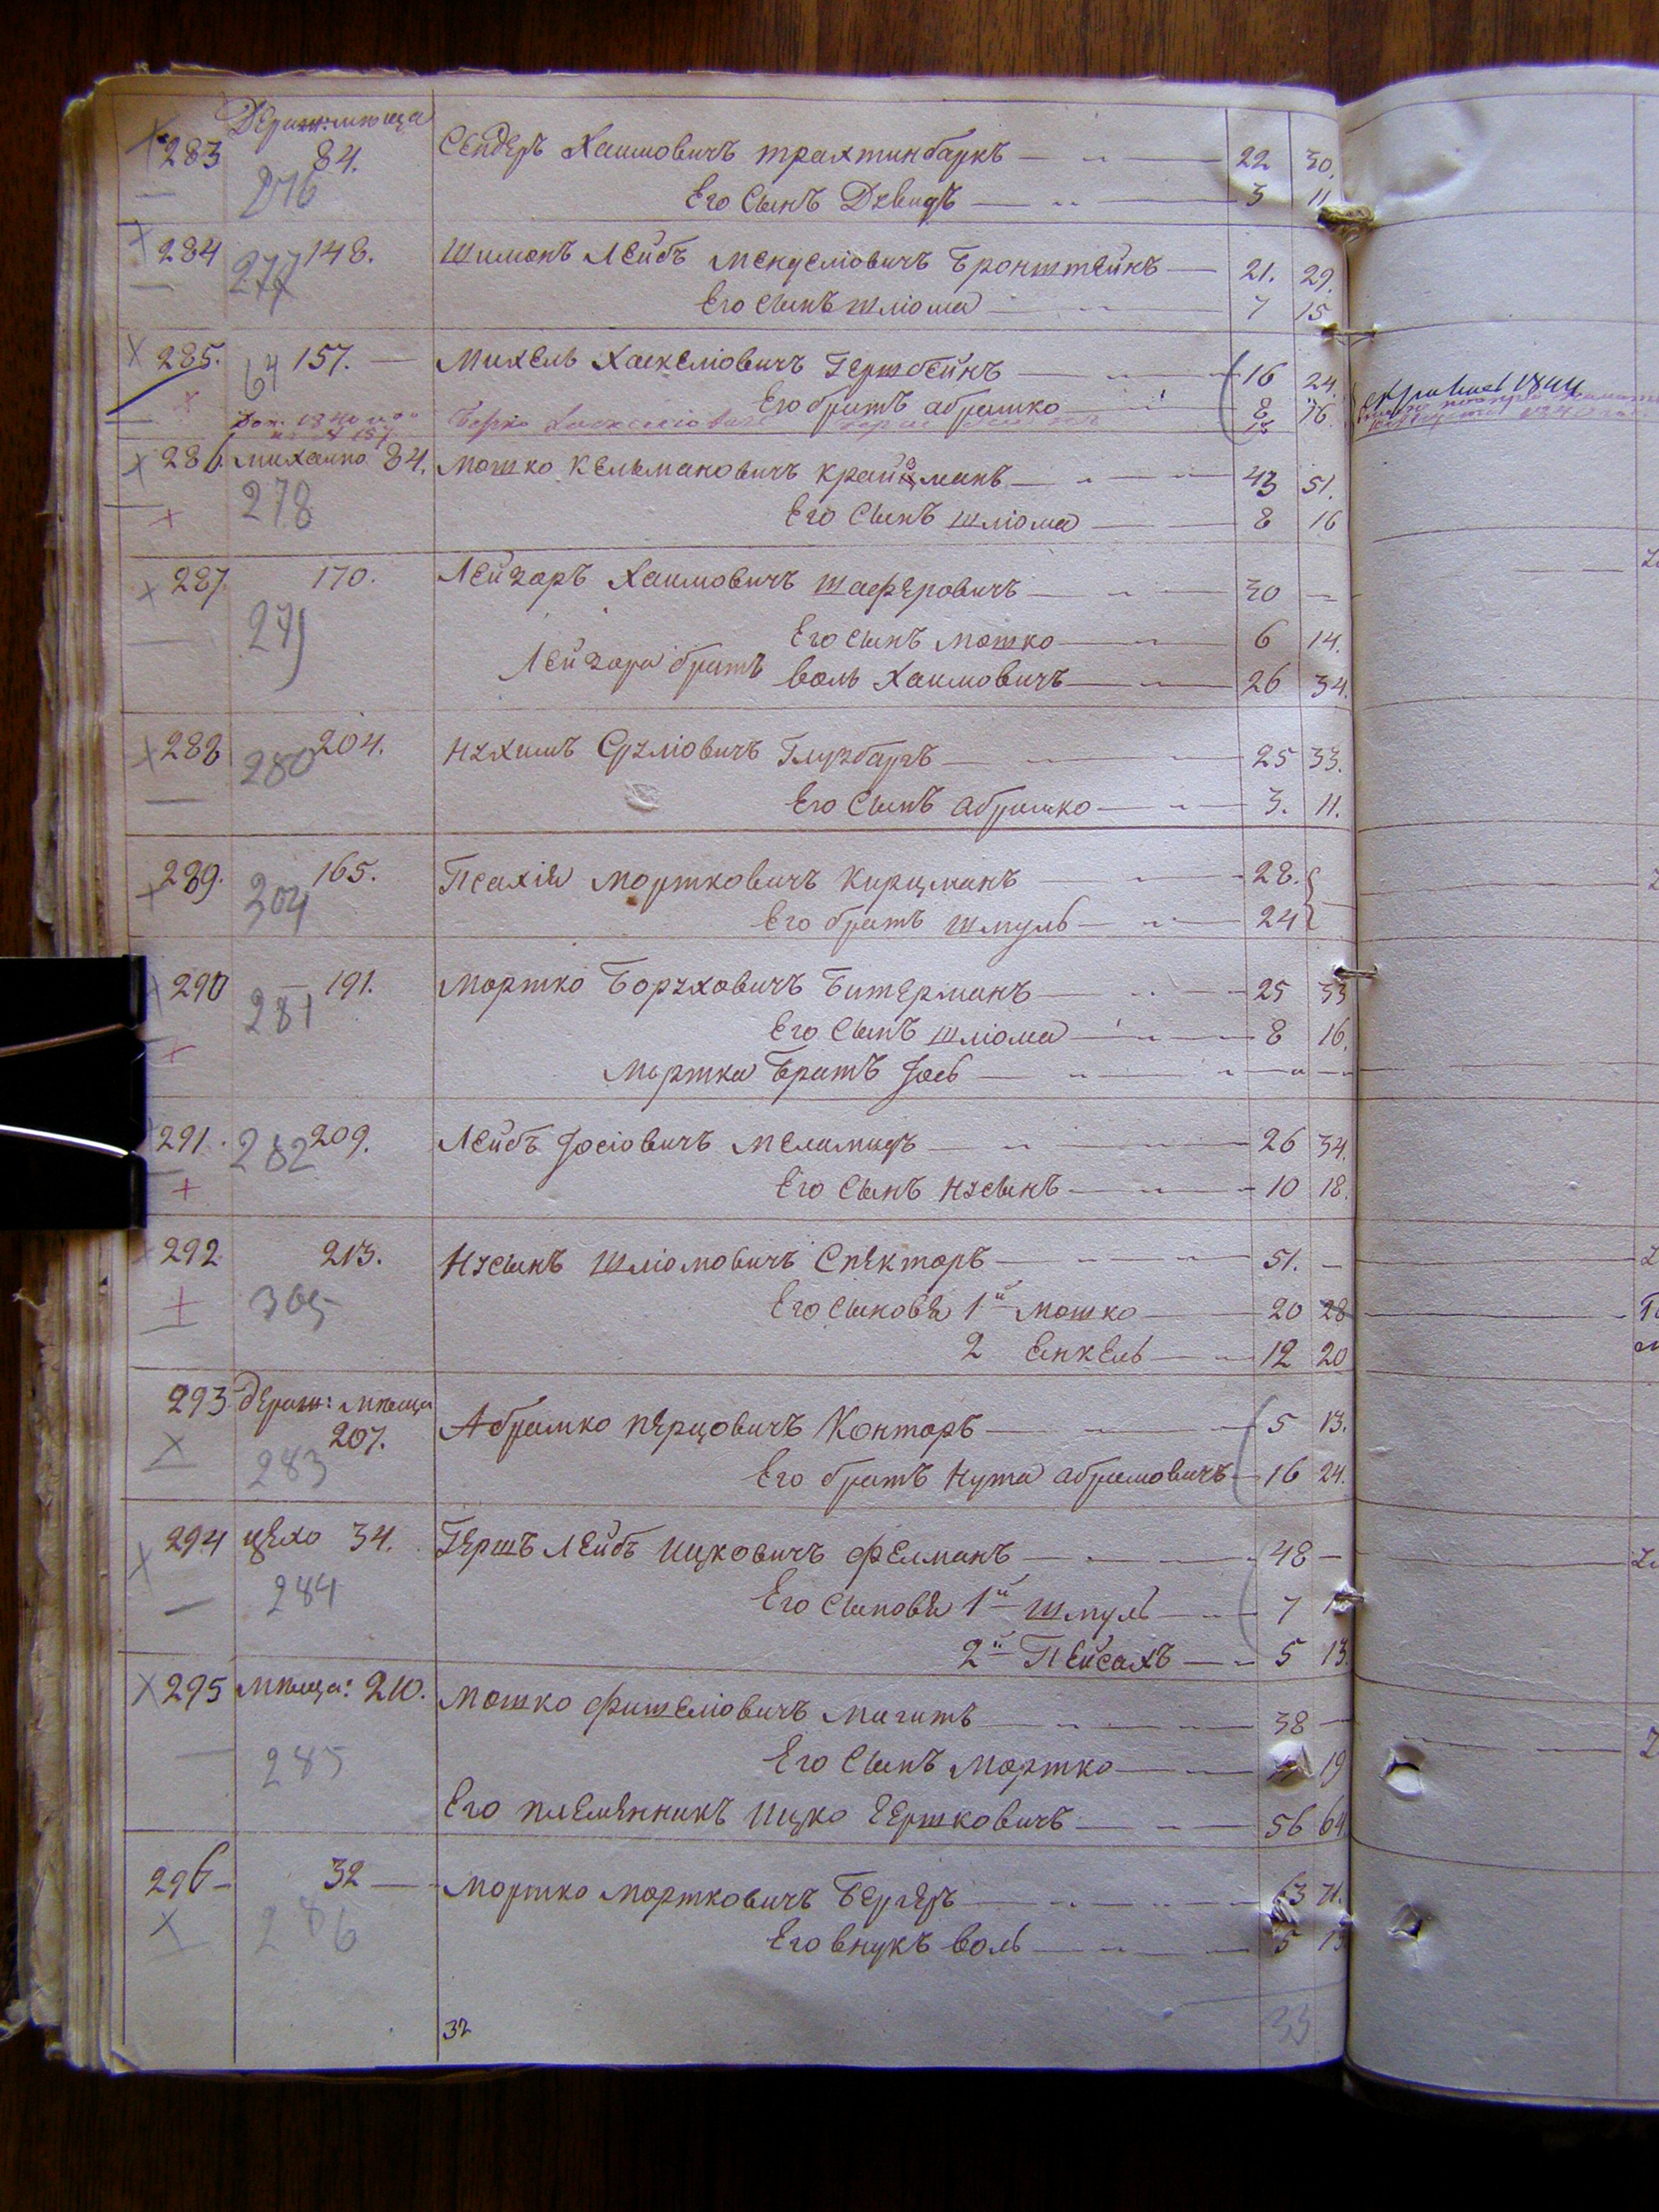 283 84. Сендеръ Хаимовичъ Трахтинбаркъ 22 30.
276
Его Сынъ Дувидъ 3 11
284 148. Шимонъ Лейбъ Менделіовичъ Бронштейнъ 21. 29.
277
Его Сынъ Шліома 7 15
285. 157. Михель Хаскеліовичъ Герштейнъ 16 24.
64
Его братъ Абрамко 8 16.
Берко Хаскеліовичъ
286. 84. Мошко Кельмановичъ Крайзманъ 43 51.
278
Его Сынъ Шліома 8 16
287. 170. Лейзаръ Хаимовичъ Шаферовичъ 30 —
279
Его Сынъ Мошко 6 14.
Лейзара братъ Воль Хаимовичъ 26 34.
288 204. Нухимъ Сруліовичъ Глузбаргъ 25 33.
280
Его Сынъ Абрамко 3. 11.
289. 165. Псахія Мортковичъ Кирцманъ 28.
204
Его братъ Шмуль 24
290 191. Мортко Боруховичъ Битерманъ 25 33
281
Его Сынъ Шліома 8 16.
Мортка Братъ Іось
291. 209. Лейбъ Іосіовичъ Меламидъ 26 34.
282
Его Сынъ Нусынъ 10 18.
292 213. Нусынъ Шліомовичъ Спекторъ 51. —
305
Его Сыновя 1й Мошко 20 28
2 Енкель 12 20
293 Дераж: мпыца
207. Абрамко Перцовичъ Конторъ 5 13.
283
Его братъ Нута Абрамовичъ 16 24.
294 цехо 34. Гершъ Лейбъ Ицковичъ Фелманъ 48 —
284
Его Сыновя 1й Шмуль 7
2й Пейсахъ 5 13.
295 мпыца: 210. Мошко Фишеліовичъ Магитъ 38 —
285
Его Сынъ Мортко 19
Его племянникъ Ицко Гершковичъ 56 64
296 32 Мортко Мортковичъ Бергеръ 63 71.
286
Его внукъ Воль 5 13
32 33